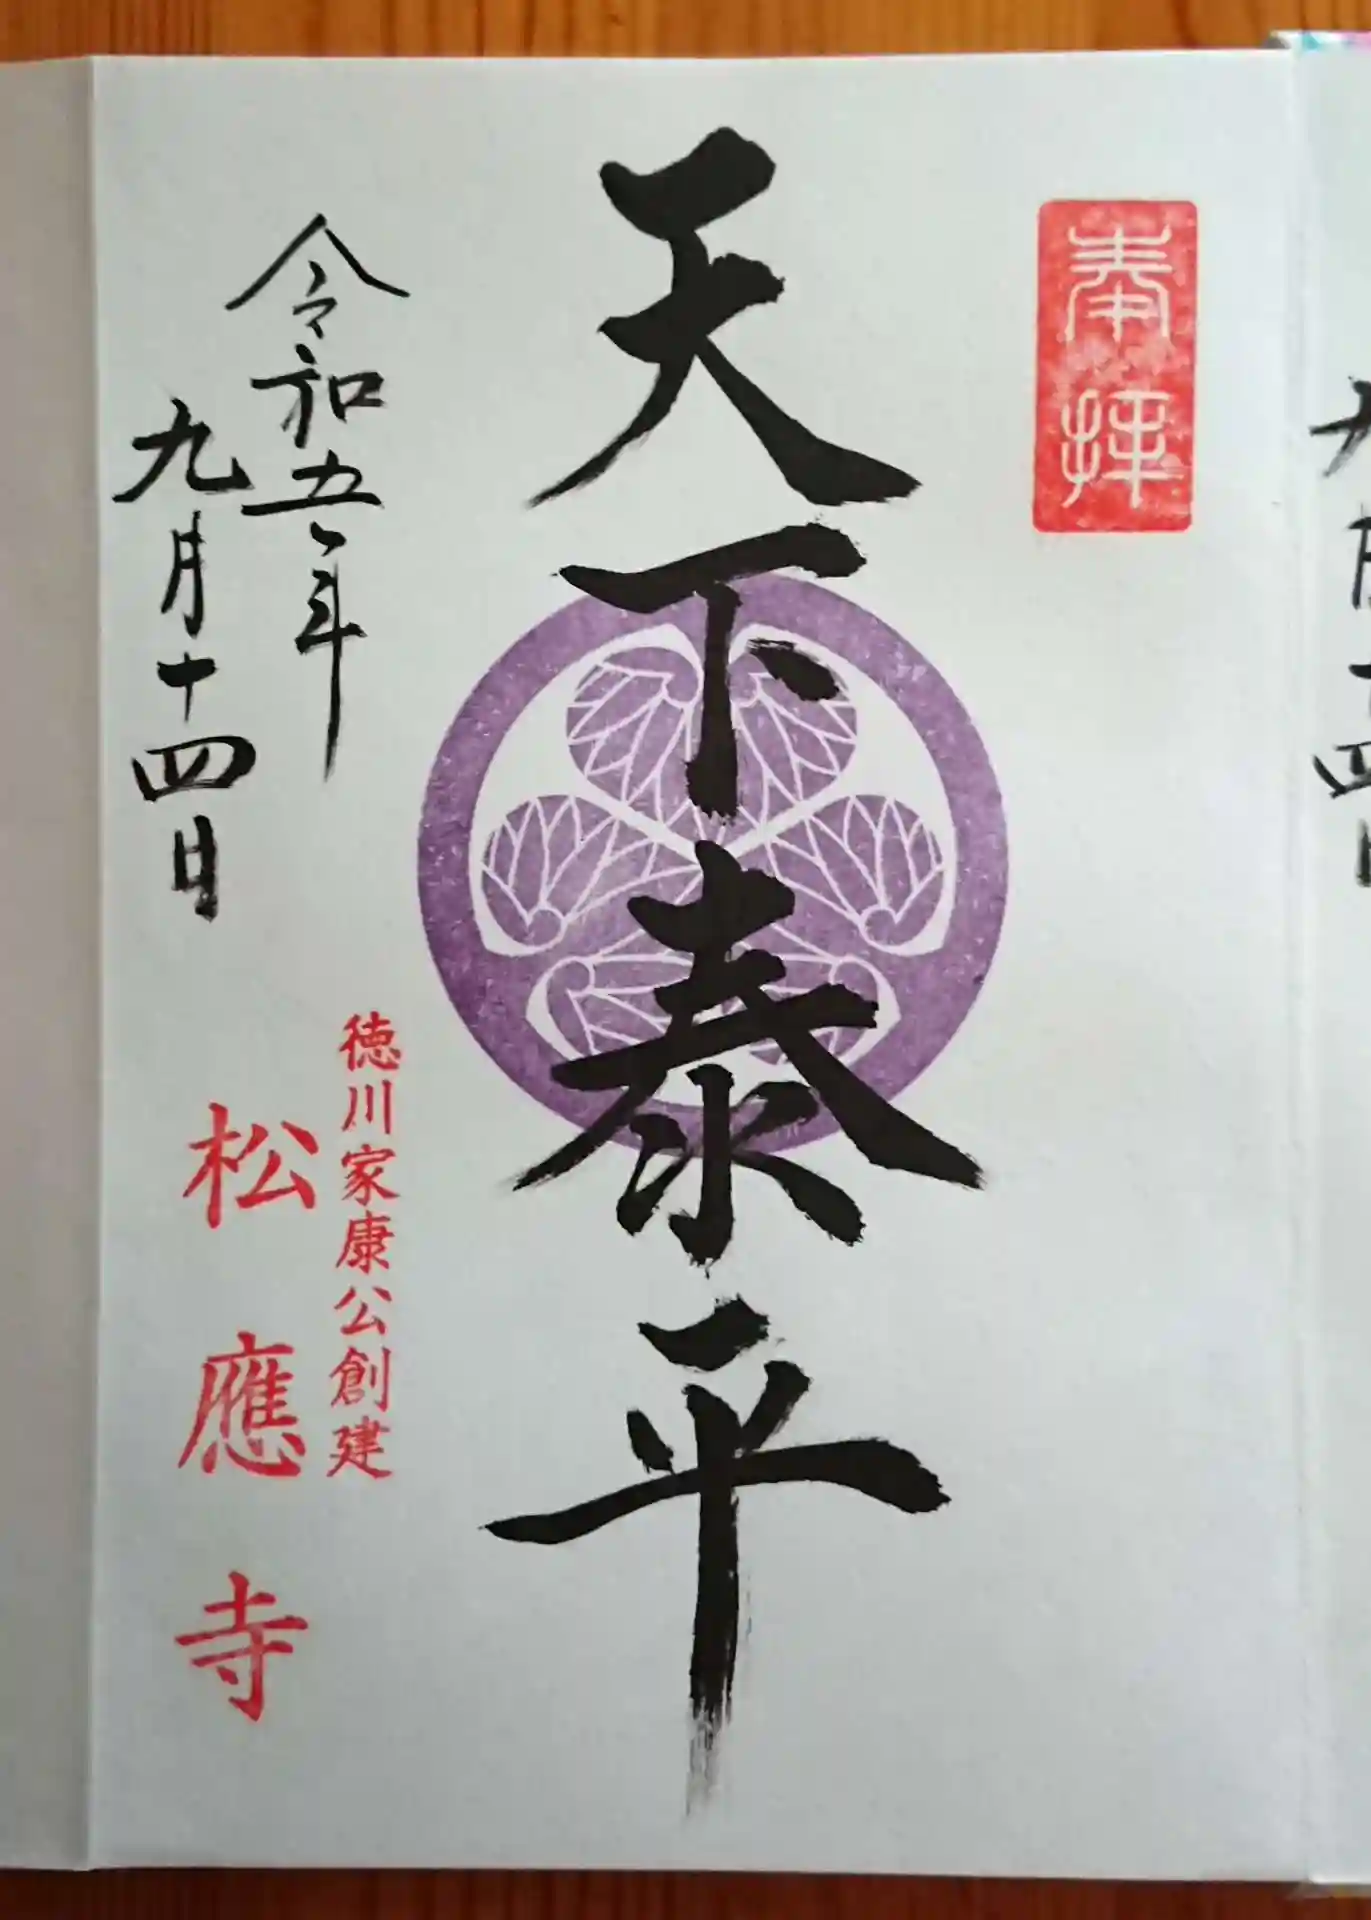 奉拝
天下泰平
令和五年
九月十四日
徳川家康公創建
松應寺